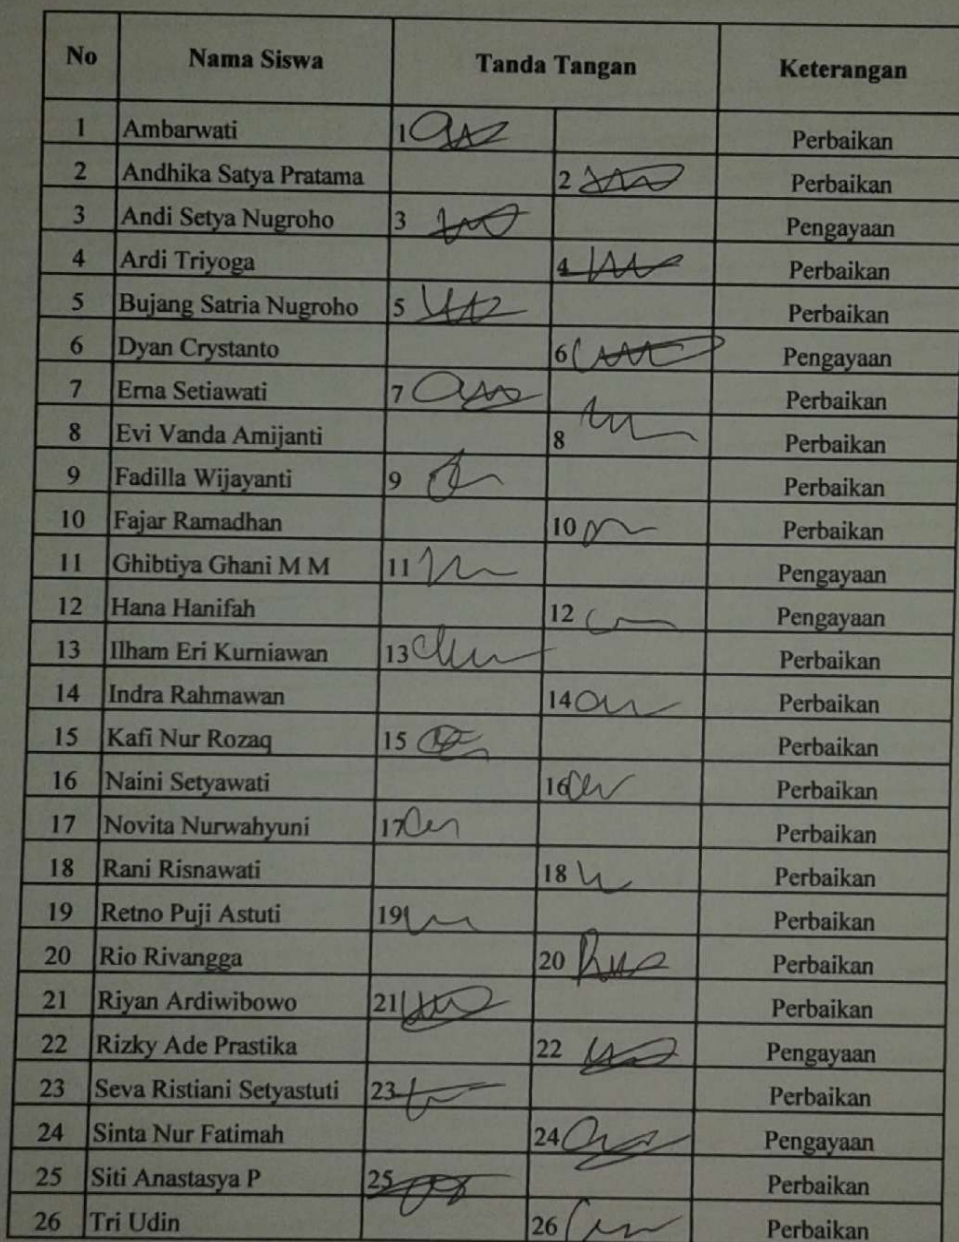 No Nama Siswa Tanda Tangan Keterangan
1 Ambarwati 1 Perbaikan
2 Andhika Satya Pratama 2 Perbaikan
3 Andi Setya Nugroho 3 Pengayaan
4 Ardi Triyoga 4 Perbaikan
5 Bujang Satria Nugroho 5 Perbaikan
6 Dyan Crystanto 6 Pengayaan
7 Erna Setiawati 7 Perbaikan
8 Evi Vanda Amijanti 8 Perbaikan
9 Fadilla Wijayanti 9 Perbaikan
10 Fajar Ramadhan 10 Perbaikan
11 Ghibtiya Ghani M M 11 Pengayaan
12 Hana Hanifah 12 Pengayaan
13 Ilham Eri Kurniawan 13 Perbaikan
14 Indra Rahmawan 14 Perbaikan
15 Kafi Nur Rozaq 15 Perbaikan
16 Naini Setyawati 16 Perbaikan
17 Novita Nurwahyuni 17 Perbaikan
18 Rani Risnawati 18 Perbaikan
19 Retno Puji Astuti 19 Perbaikan
20 Rio Rivangga 20 Perbaikan
21 Riyan Ardiwibowo 21 Perbaikan
22 Rizky Ade Prastika 22 Pengayaan
23 Seva Ristiani Setyastuti 23 Perbaikan
24 Sinta Nur Fatimah 24 Pengayaan
25 Siti Anastasya P 25 Perbaikan
26 Tri Udin 26 Perbaikan